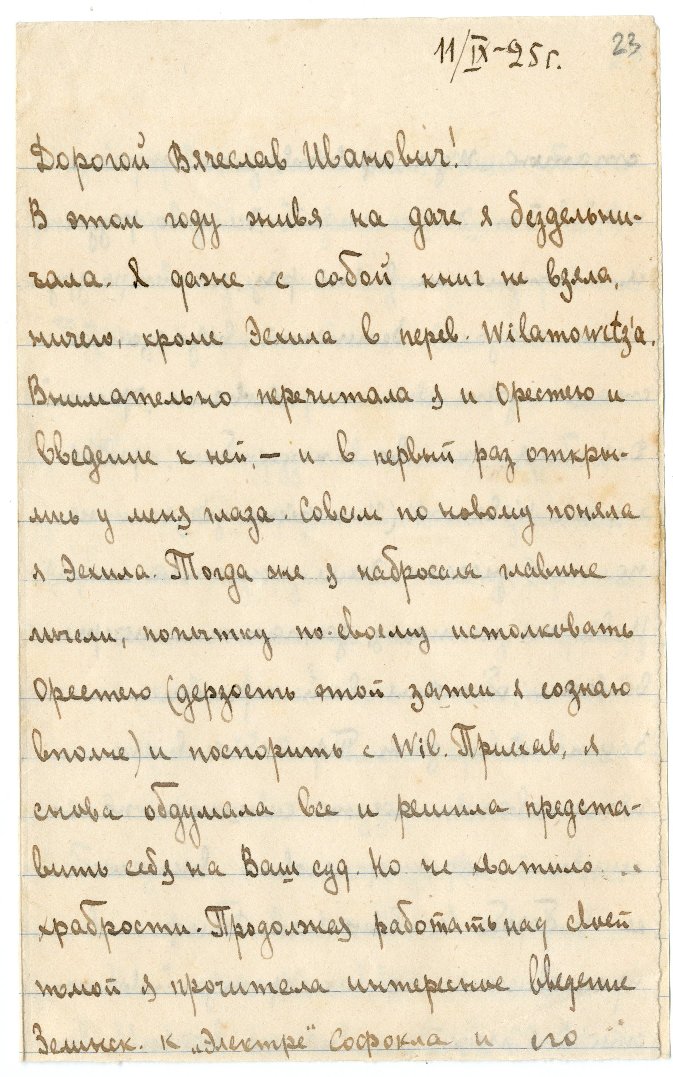 11/IX-25г. 23
Дорогой Вячеслав Иванович!
В этом году живя на даче я бездельни-
чала. Я даже с собой книг не взяла,
ничего, кроме Эсхила в перев. Wilamowitz'a.
Внимательно перечитала я и Орестею и
введение к ней, — и в первый раз откры-
лись у меня глаза. Совсем по новому поняла
я Эсхила. Тогда же я набросала главные
мысли, попытку по-своему истолковать
Орестею (дерзость этой затеи я сознаю
вполне) и поспорить с Wil. Приехав, я
снова обдумала все и решила предста-
вить себя на Ваш суд. Но не хватило
храбрости. Продолжая работать над своей
темой я прочитала интересное введение
Зелинск. к „Электре" Софокла и его